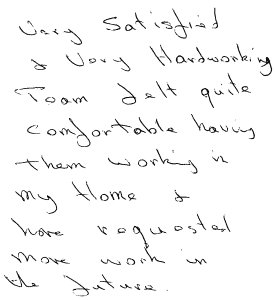 Very Satisfied
& Very Hardworking
Team felt quite
comfortable having
them working in
my Home &
have requested
more work in
the future.